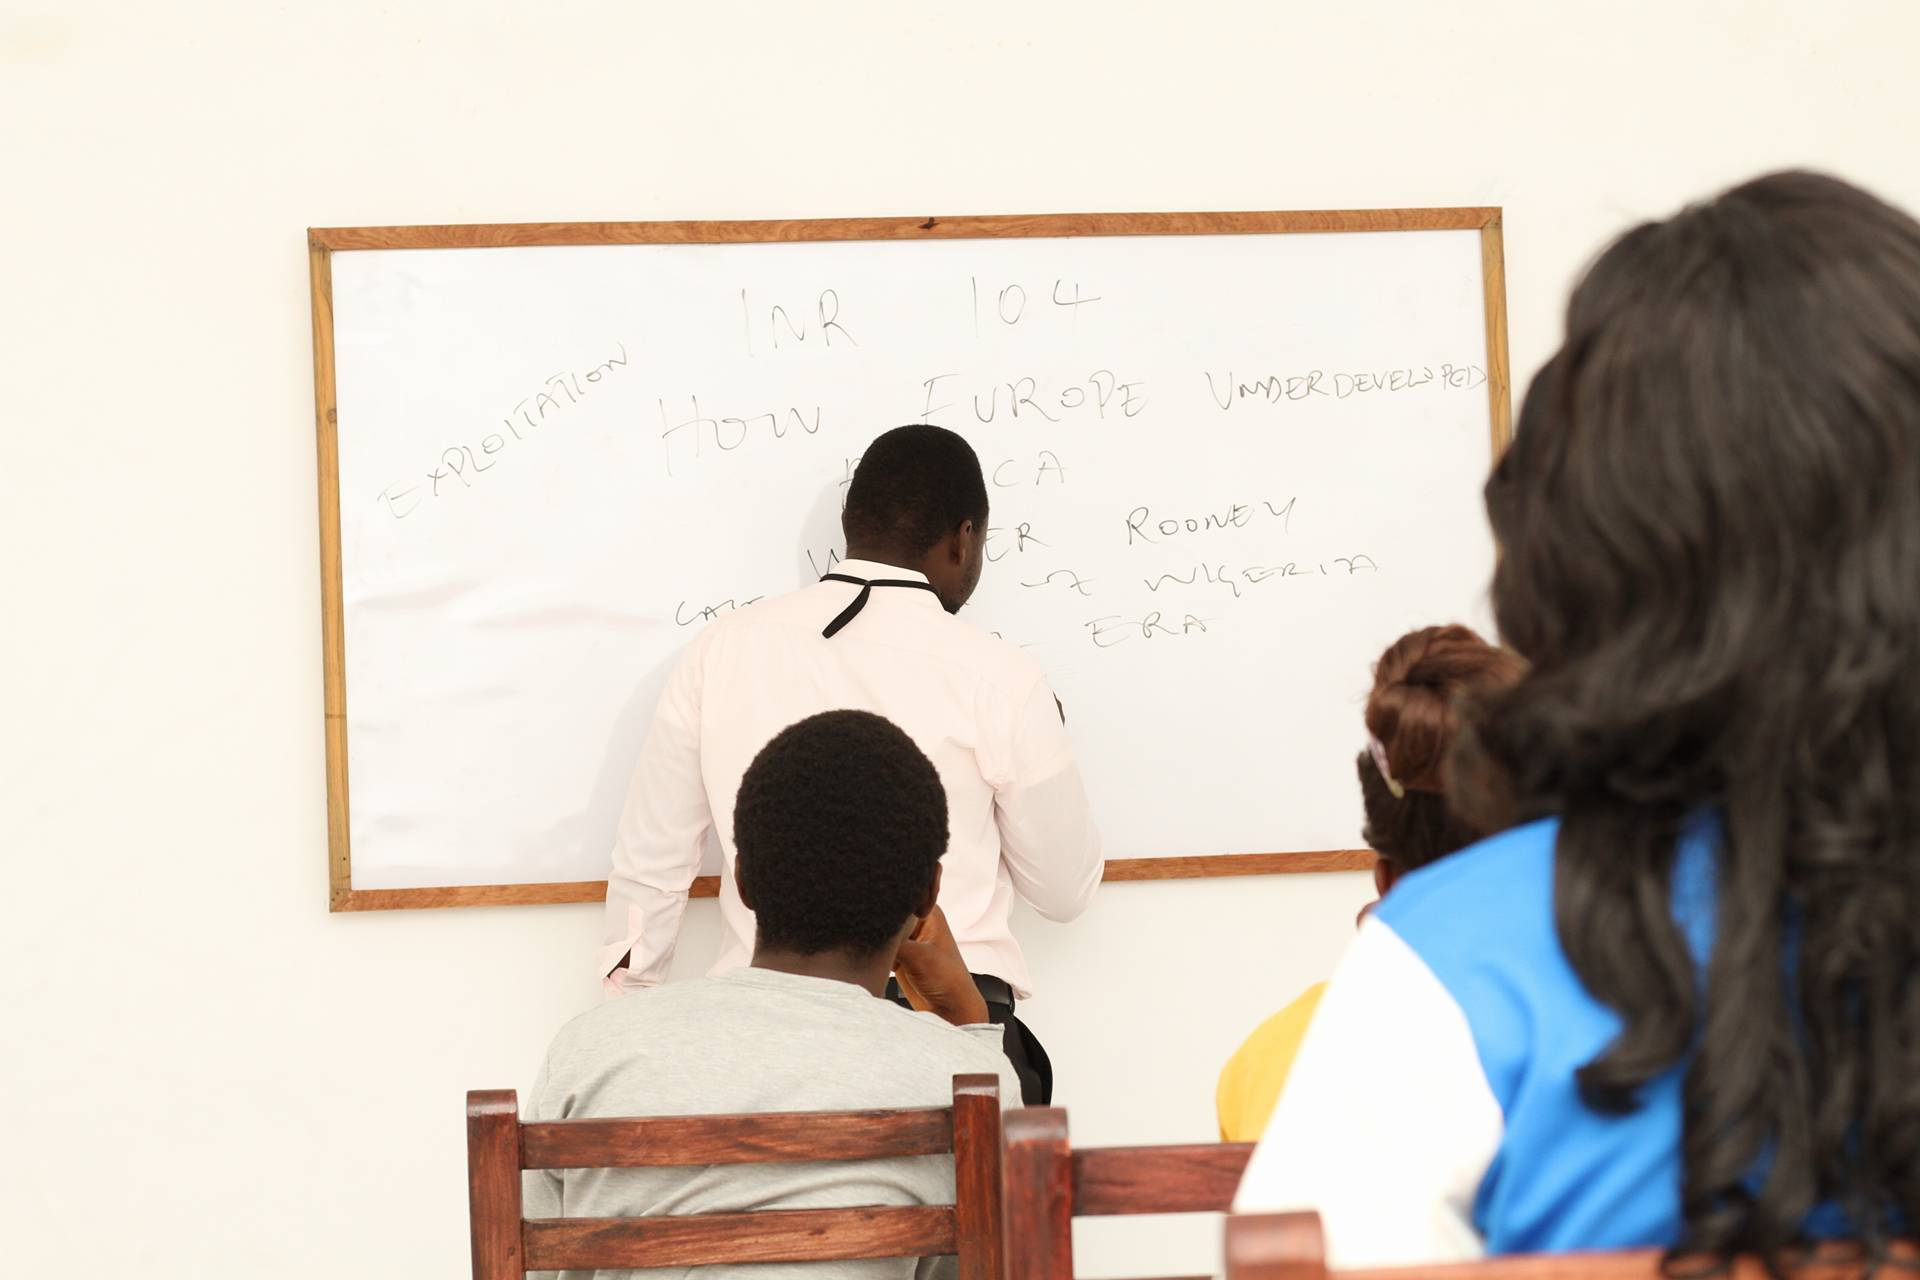 INR 104
EXPLOITATION
HOW EUROPE UNDERDEVELOPED
ROONEY
NIGERIA
ERA